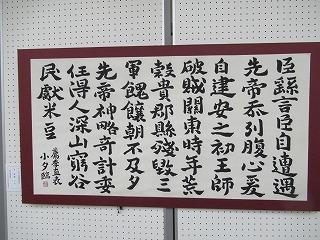 臣繇言臣自遭遇
先帝忝列腹心爰
自建安之初王師
破賊關東時年荒
穀貴郡縣殘毀三
軍餽饟朝不及夕
先帝神略奇計委
任得人深山窮谷
民獻米豆
薦季直表
小夕臨